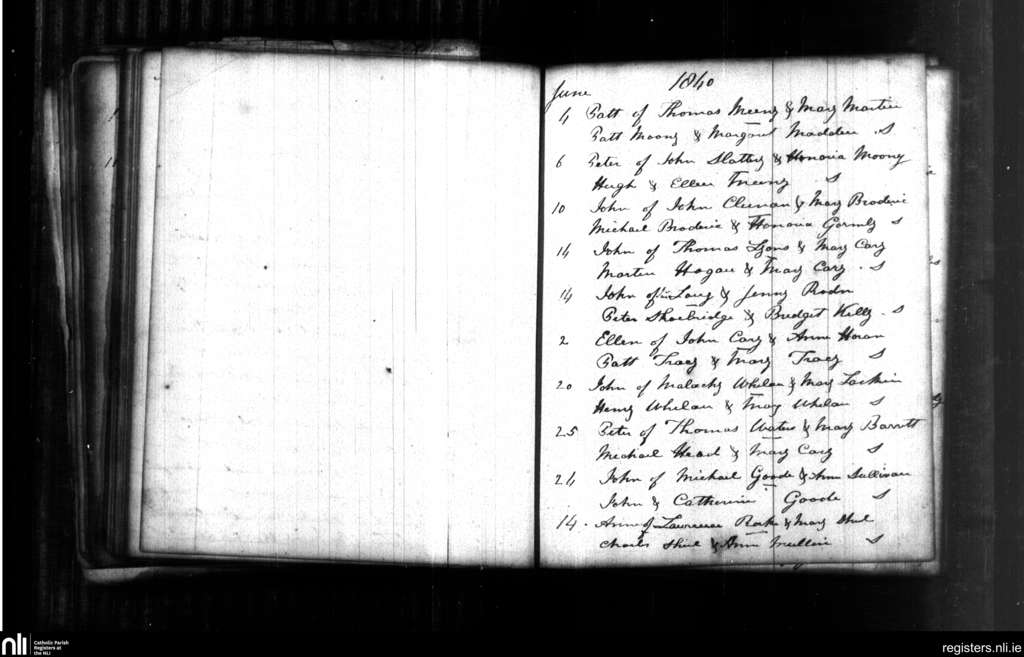 1840
June
4 Patt of Thomas Meeny & Mary Martin
Patt Moony & Margaret Madden S
6 Peter of John Slattery & Honoria Moony
Hugh & Ellen S
10 John of John Clunan & Mary Broderic
Michael Broderic & Honoria Gormly S
14 John of Thomas Lyons & Mary Cary
Martin Hogan & Mary Cary S
14 John of Long & Jenny
Peter Shoebridge & Bridget Kelly S
2 Ellen of John Cary & Anne Horan
Patt Tracy & Mary Tracy S
20 John of Malachy Whelan & Mary Larkin
Henry Whelan & Mary Whelan S
25 Peter of Thomas Waters & Mary Barrett
Michael Head & Mary Cary S
24 John of Michael Goode & Ann Sullivan
John & Catherine Goode S
14 Anne of Lawrence & Mary Shiel
Charles Shiel & Ann Mullin S
nli
Catholic Parish
Registers at
the NLI
registers.nli.ie